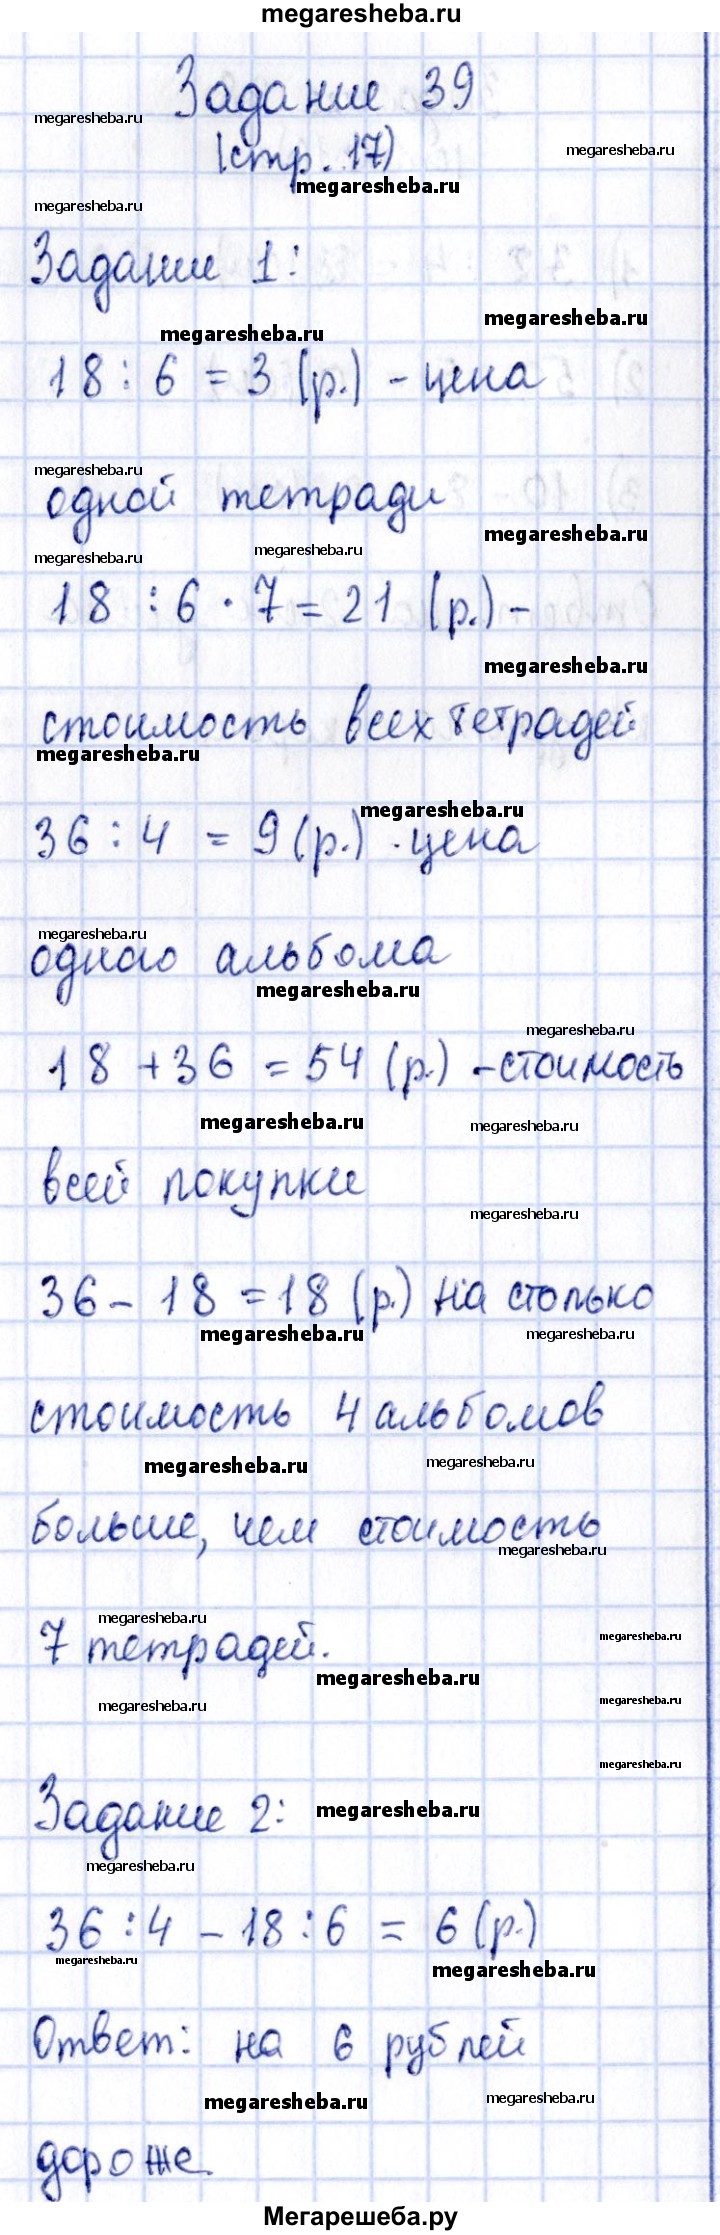 megaresheba.ru
Задание 39
megaresheba.ru
(стр. 17)
megaresheba.ru
megaresheba.ru
megaresheba.ru
Задание 1:
megaresheba.ru
megaresheba.ru
18 : 6 = 3 (р.) - цена
megaresheba.ru
одной тетради
megaresheba.ru
megaresheba.ru
megaresheba.ru
18 : 6 · 7 = 21 (р.) -
megaresheba.ru
стоимость всех тетрадей
megaresheba.ru
megaresheba.ru
36 : 4 = 9 (р.) - цена
megaresheba.ru
одного альбома
megaresheba.ru
megaresheba.ru
18 + 36 = 54 (р.) - стоимость
megaresheba.ru
megaresheba.ru
всей покупки
megaresheba.ru
36 - 18 = 18 (р.) на столько
megaresheba.ru
megaresheba.ru
стоимость 4 альбомов
megaresheba.ru
megaresheba.ru
больше, чем стоимость
megaresheba.ru
megaresheba.ru
7 тетрадей.
megaresheba.ru
megaresheba.ru
megaresheba.ru
megaresheba.ru
megaresheba.ru
Задание 2:
megaresheba.ru
megaresheba.ru
36 : 4 - 18 : 6 = 6 (р.)
megaresheba.ru
megaresheba.ru
Ответ: на 6 рублей
megaresheba.ru
megaresheba.ru
дороже.
Мегарешеба.ру